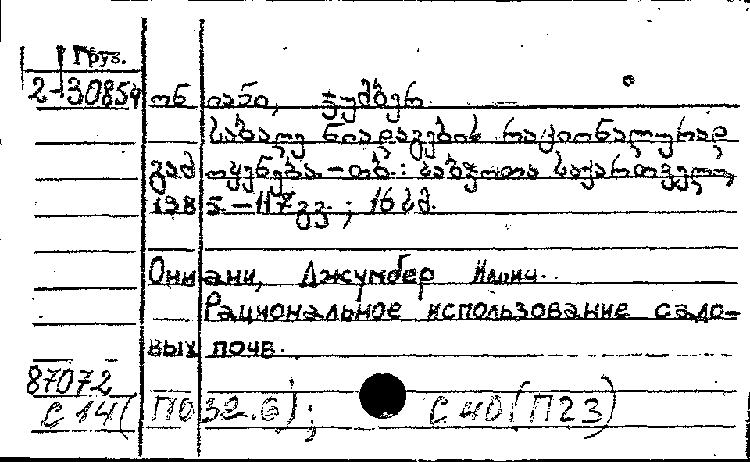 Груз.
2-30854 ონიანი, ჯუმბერ
საბაღე ნიადაგების რაციონალურად
გამოყენება.-თბ.: საბჭოთა საქართველო,
1985.-117გვ.; 16სმ.
Ониани, Джумбер Ильич.
Рациональное использование садо-
вых почв.
87072
С 14(П032.6); С 40(П23)